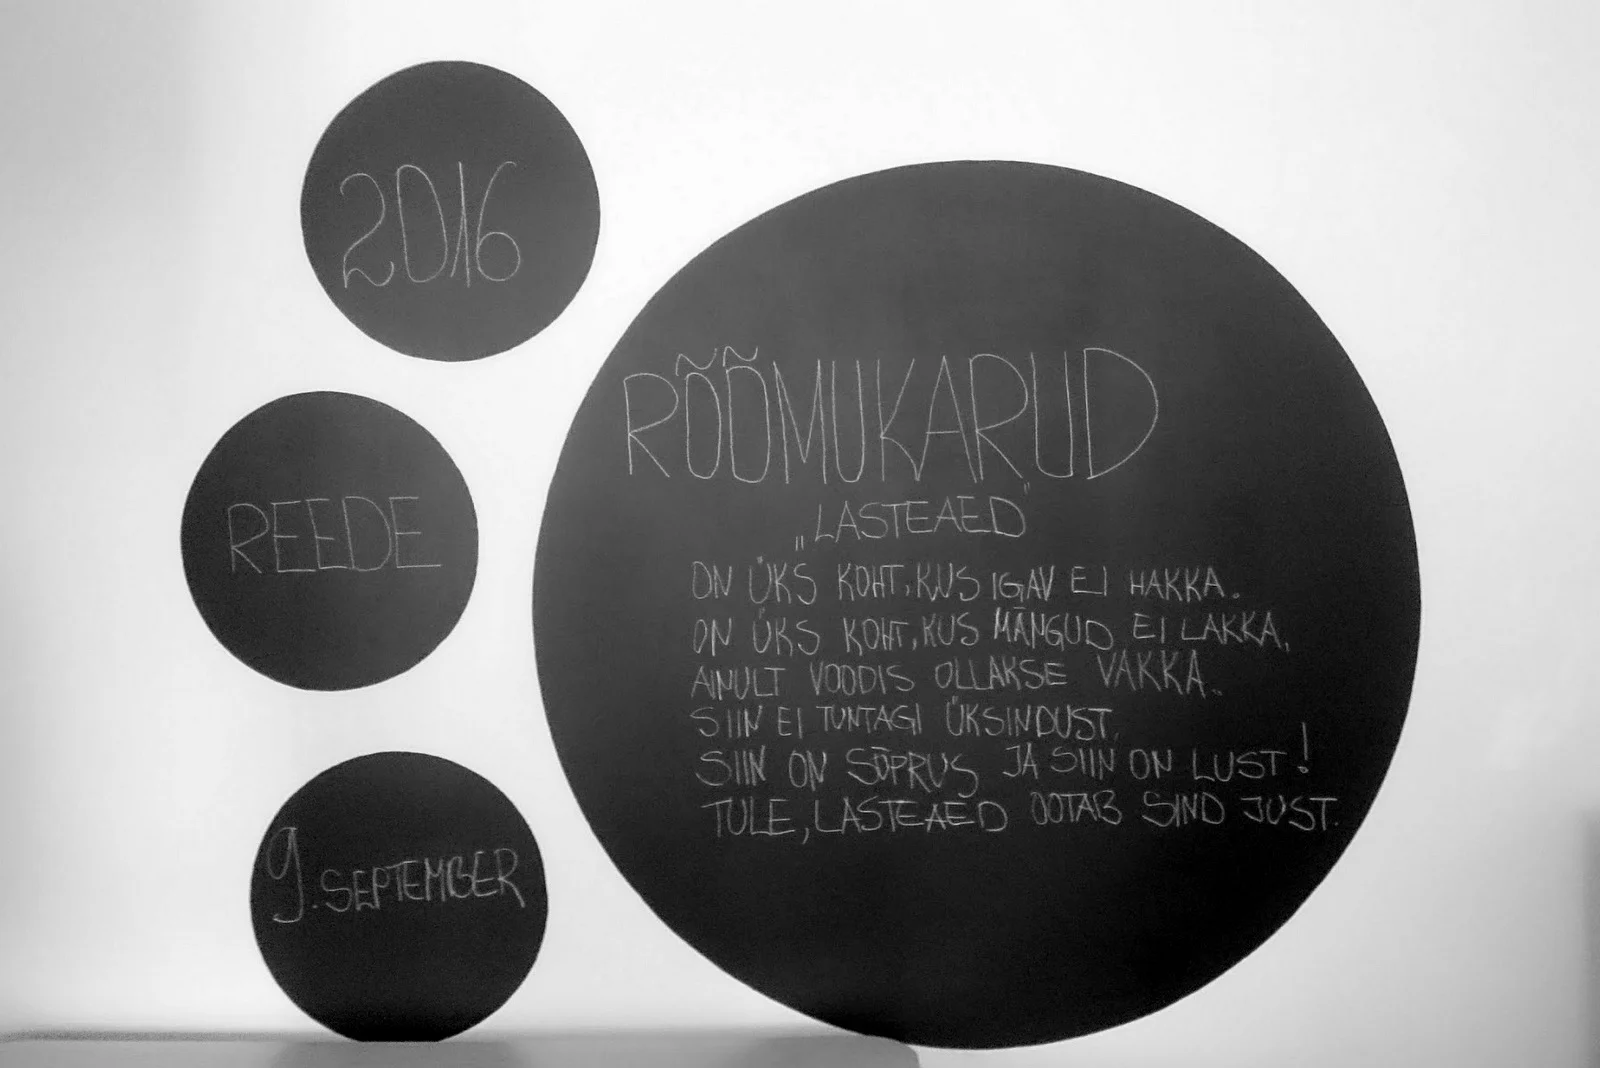 2016
REEDE
9. SEPTEMBER
RÕÕMUKARUD
„LASTEAED"
ON ÜKS KOHT, KUS IGAV EI HAKKA.
ON ÜKS KOHT, KUS MÄNGUD EI LAKKA,
AINULT VOODIS OLLAKSE VAKKA..
SIIN EI TUNTAGI ÜKSINDUST,
SIIN ON SÕPRUS JA SIIN ON LUST!
TULE, LASTEAED OOTAB SIND JUST.